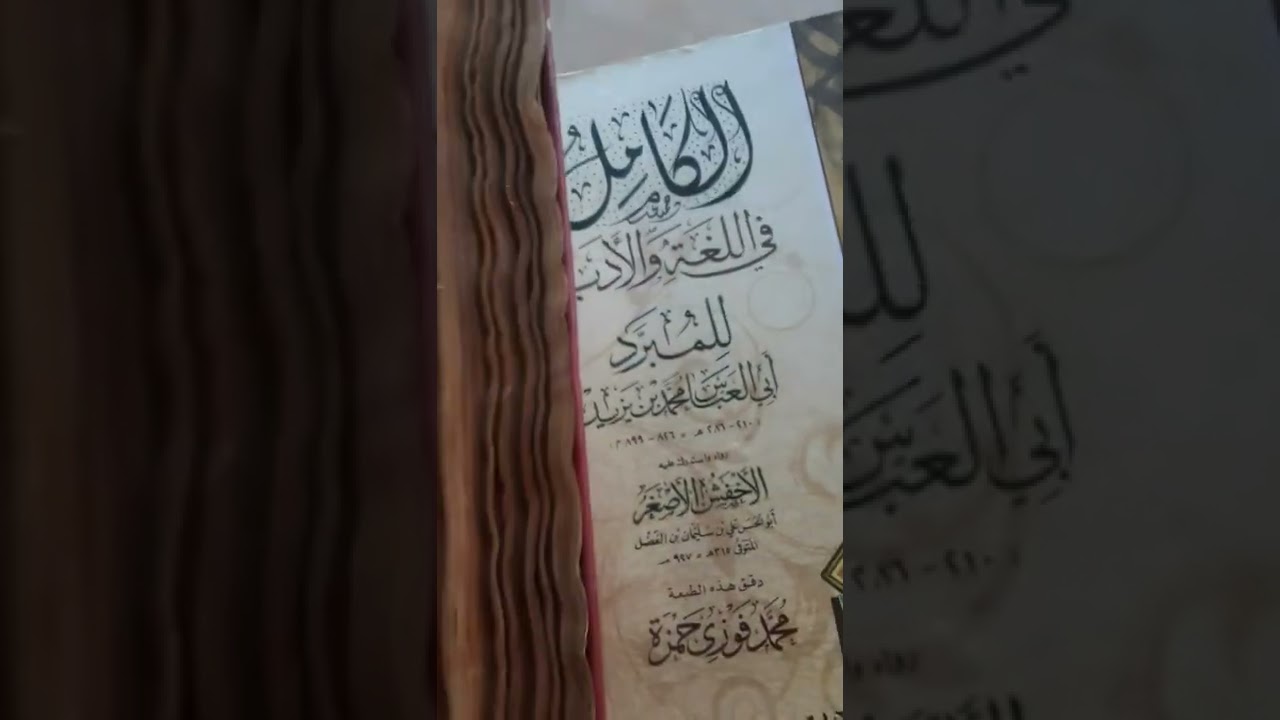 الكامل
في اللغة والأدب
للمبرد
أبي العباس محمد بن يزيد
(٢١٠ - ٢٨٦ هـ = ٨٢٦ - ٨٩٩ م)
رواه واستدرك عليه
الأخفش الأصغر
أبو الحسن علي بن سليمان بن الفضل
المتوفى ٣١٥ هـ = ٩٢٧ م
دقق هذه الطبعة
محمد فوزي حمزة